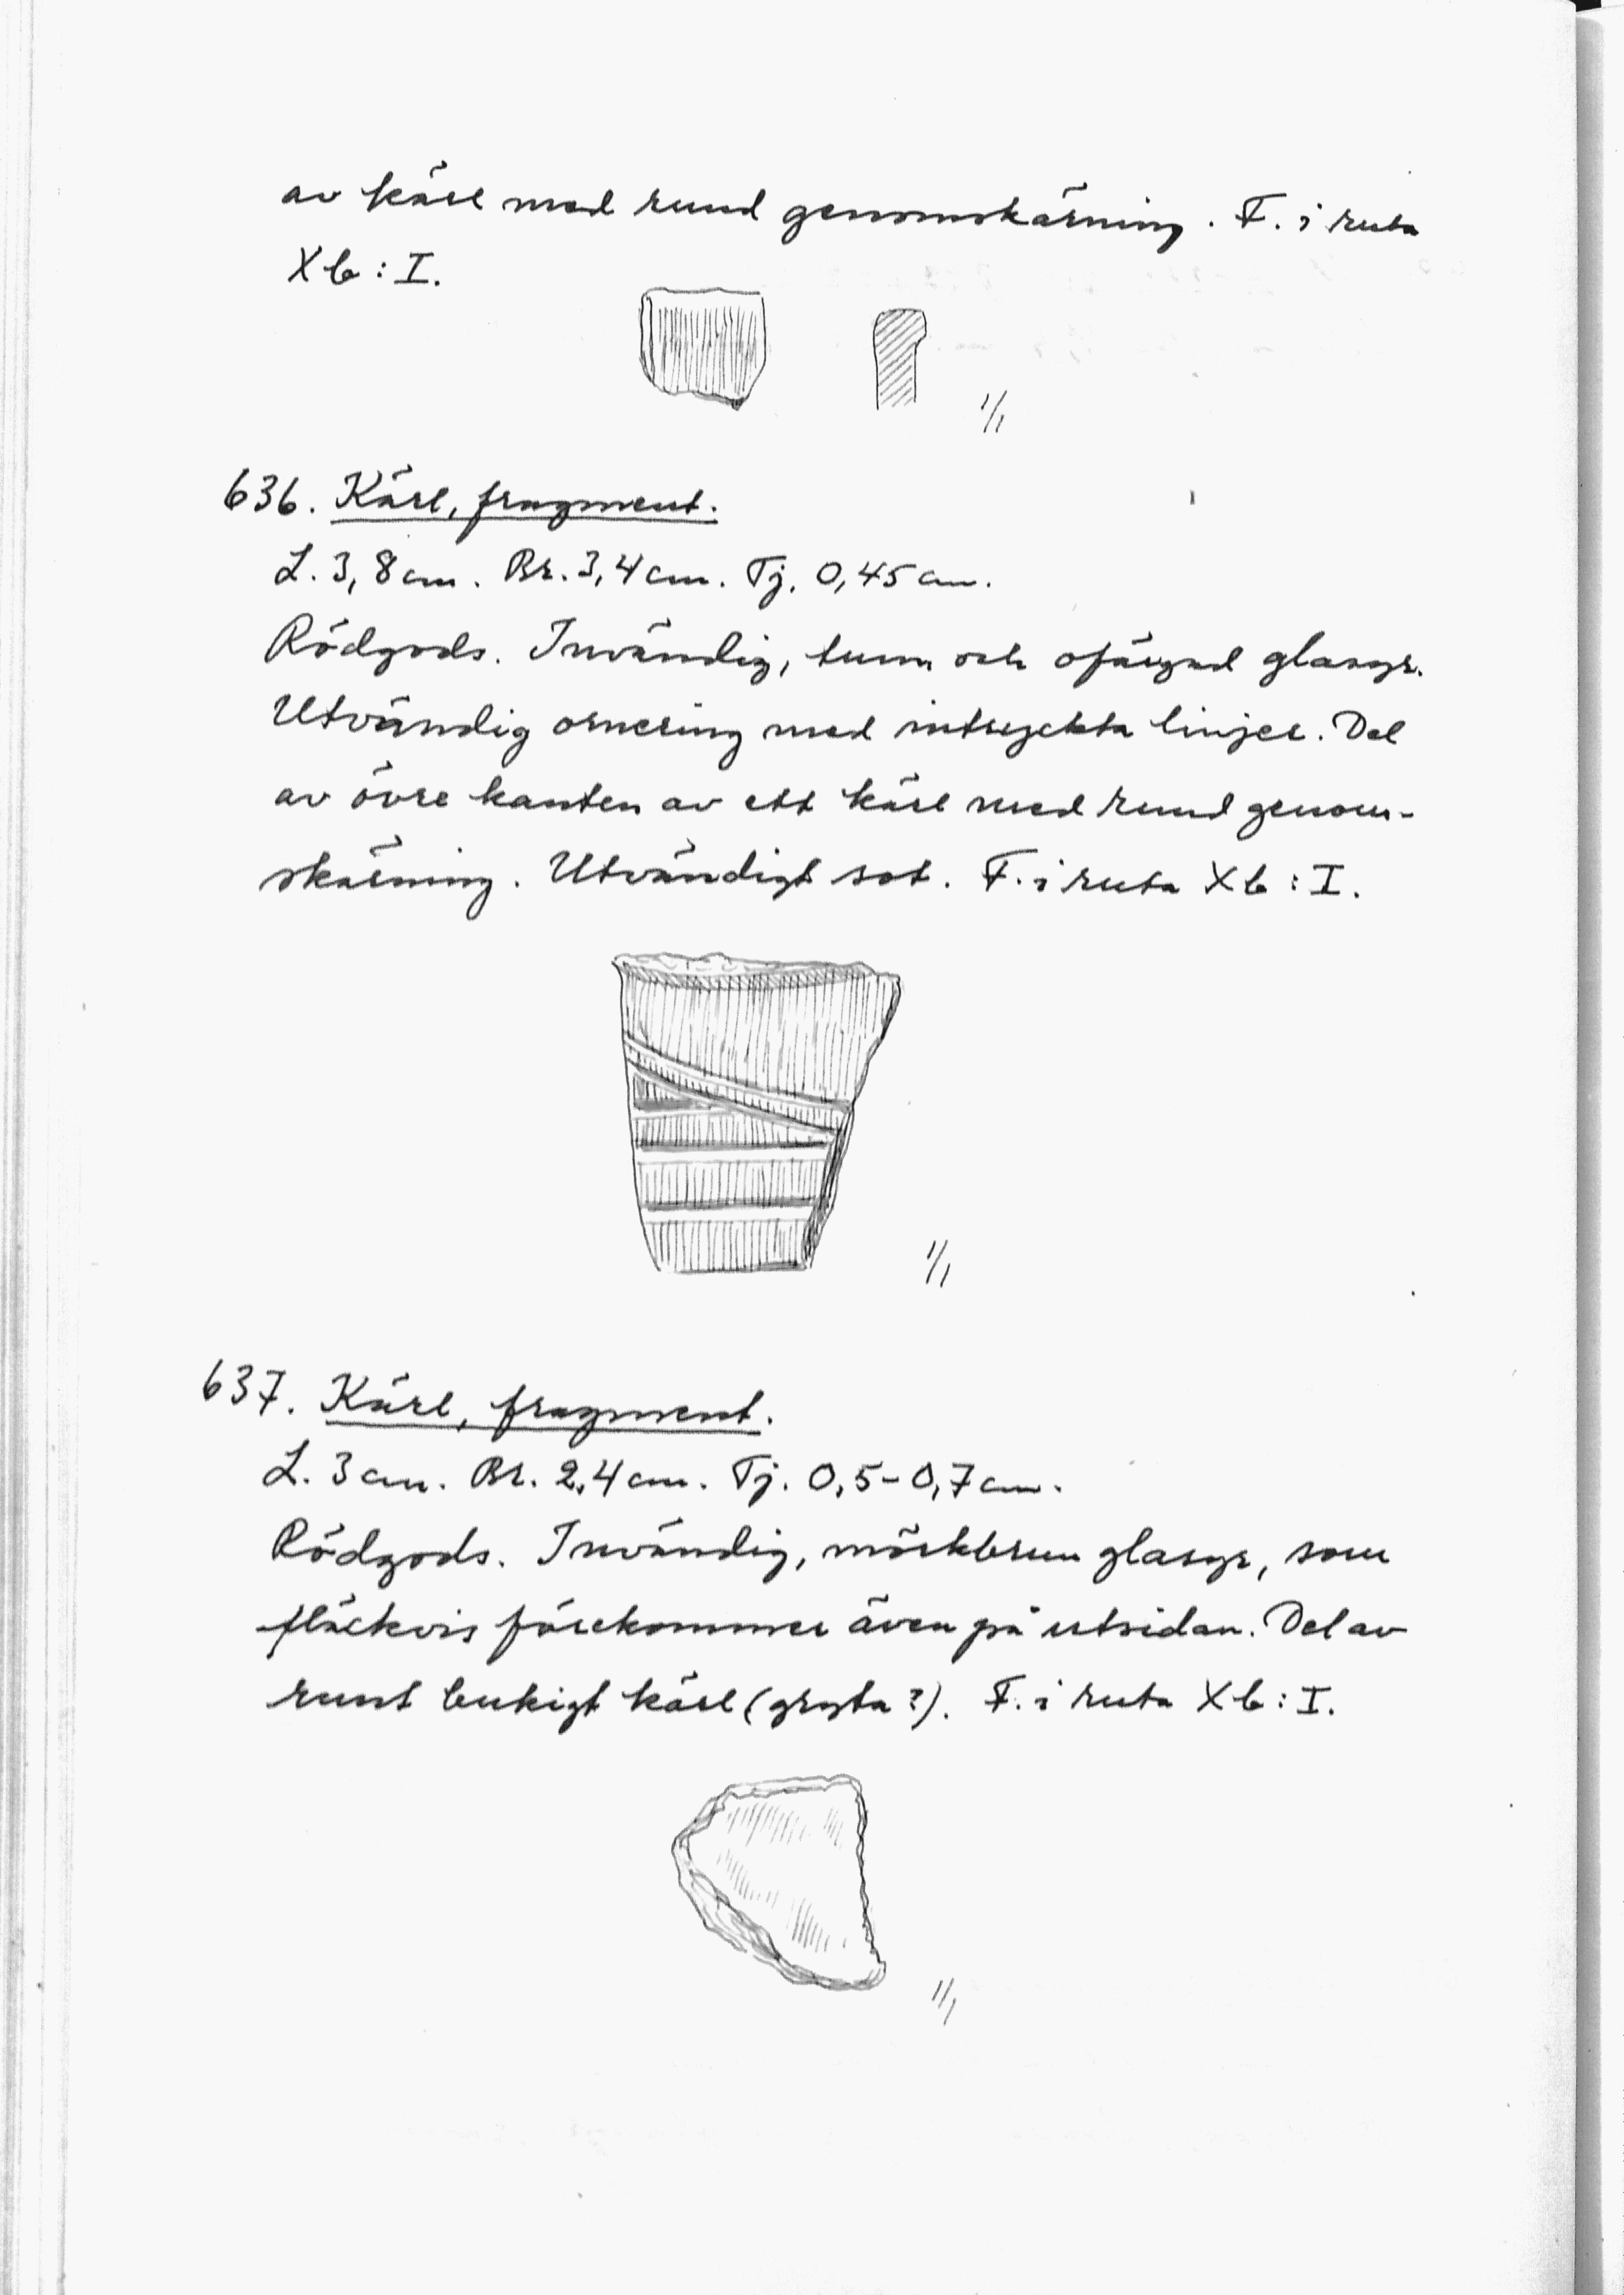 av kärl med rund genomskärning. F. i ruta
Xb : I.
1/1
636. Kärl, fragment.
L. 3,8 cm. Br. 3,4 cm. Tj. 0,45 cm.
Rödgods. Invändig, tunn och ofärgad glasyr.
Utvändig ornering med intryckta linjer. Del
av övre kanten av ett kärl med rund genom-
skärning. Utvändigt sot. F. i ruta Xb : I.
1/1
637. Kärl, fragment.
L. 3 cm. Br. 2,4 cm. Tj. 0,5-0,7 cm.
Rödgods. Invändig, mörkbrun glasyr, som
fläckvis förekommer även på utsidan. Del av
runt bukigt kärl (gryta?). F. i ruta Xb : I.
1/1